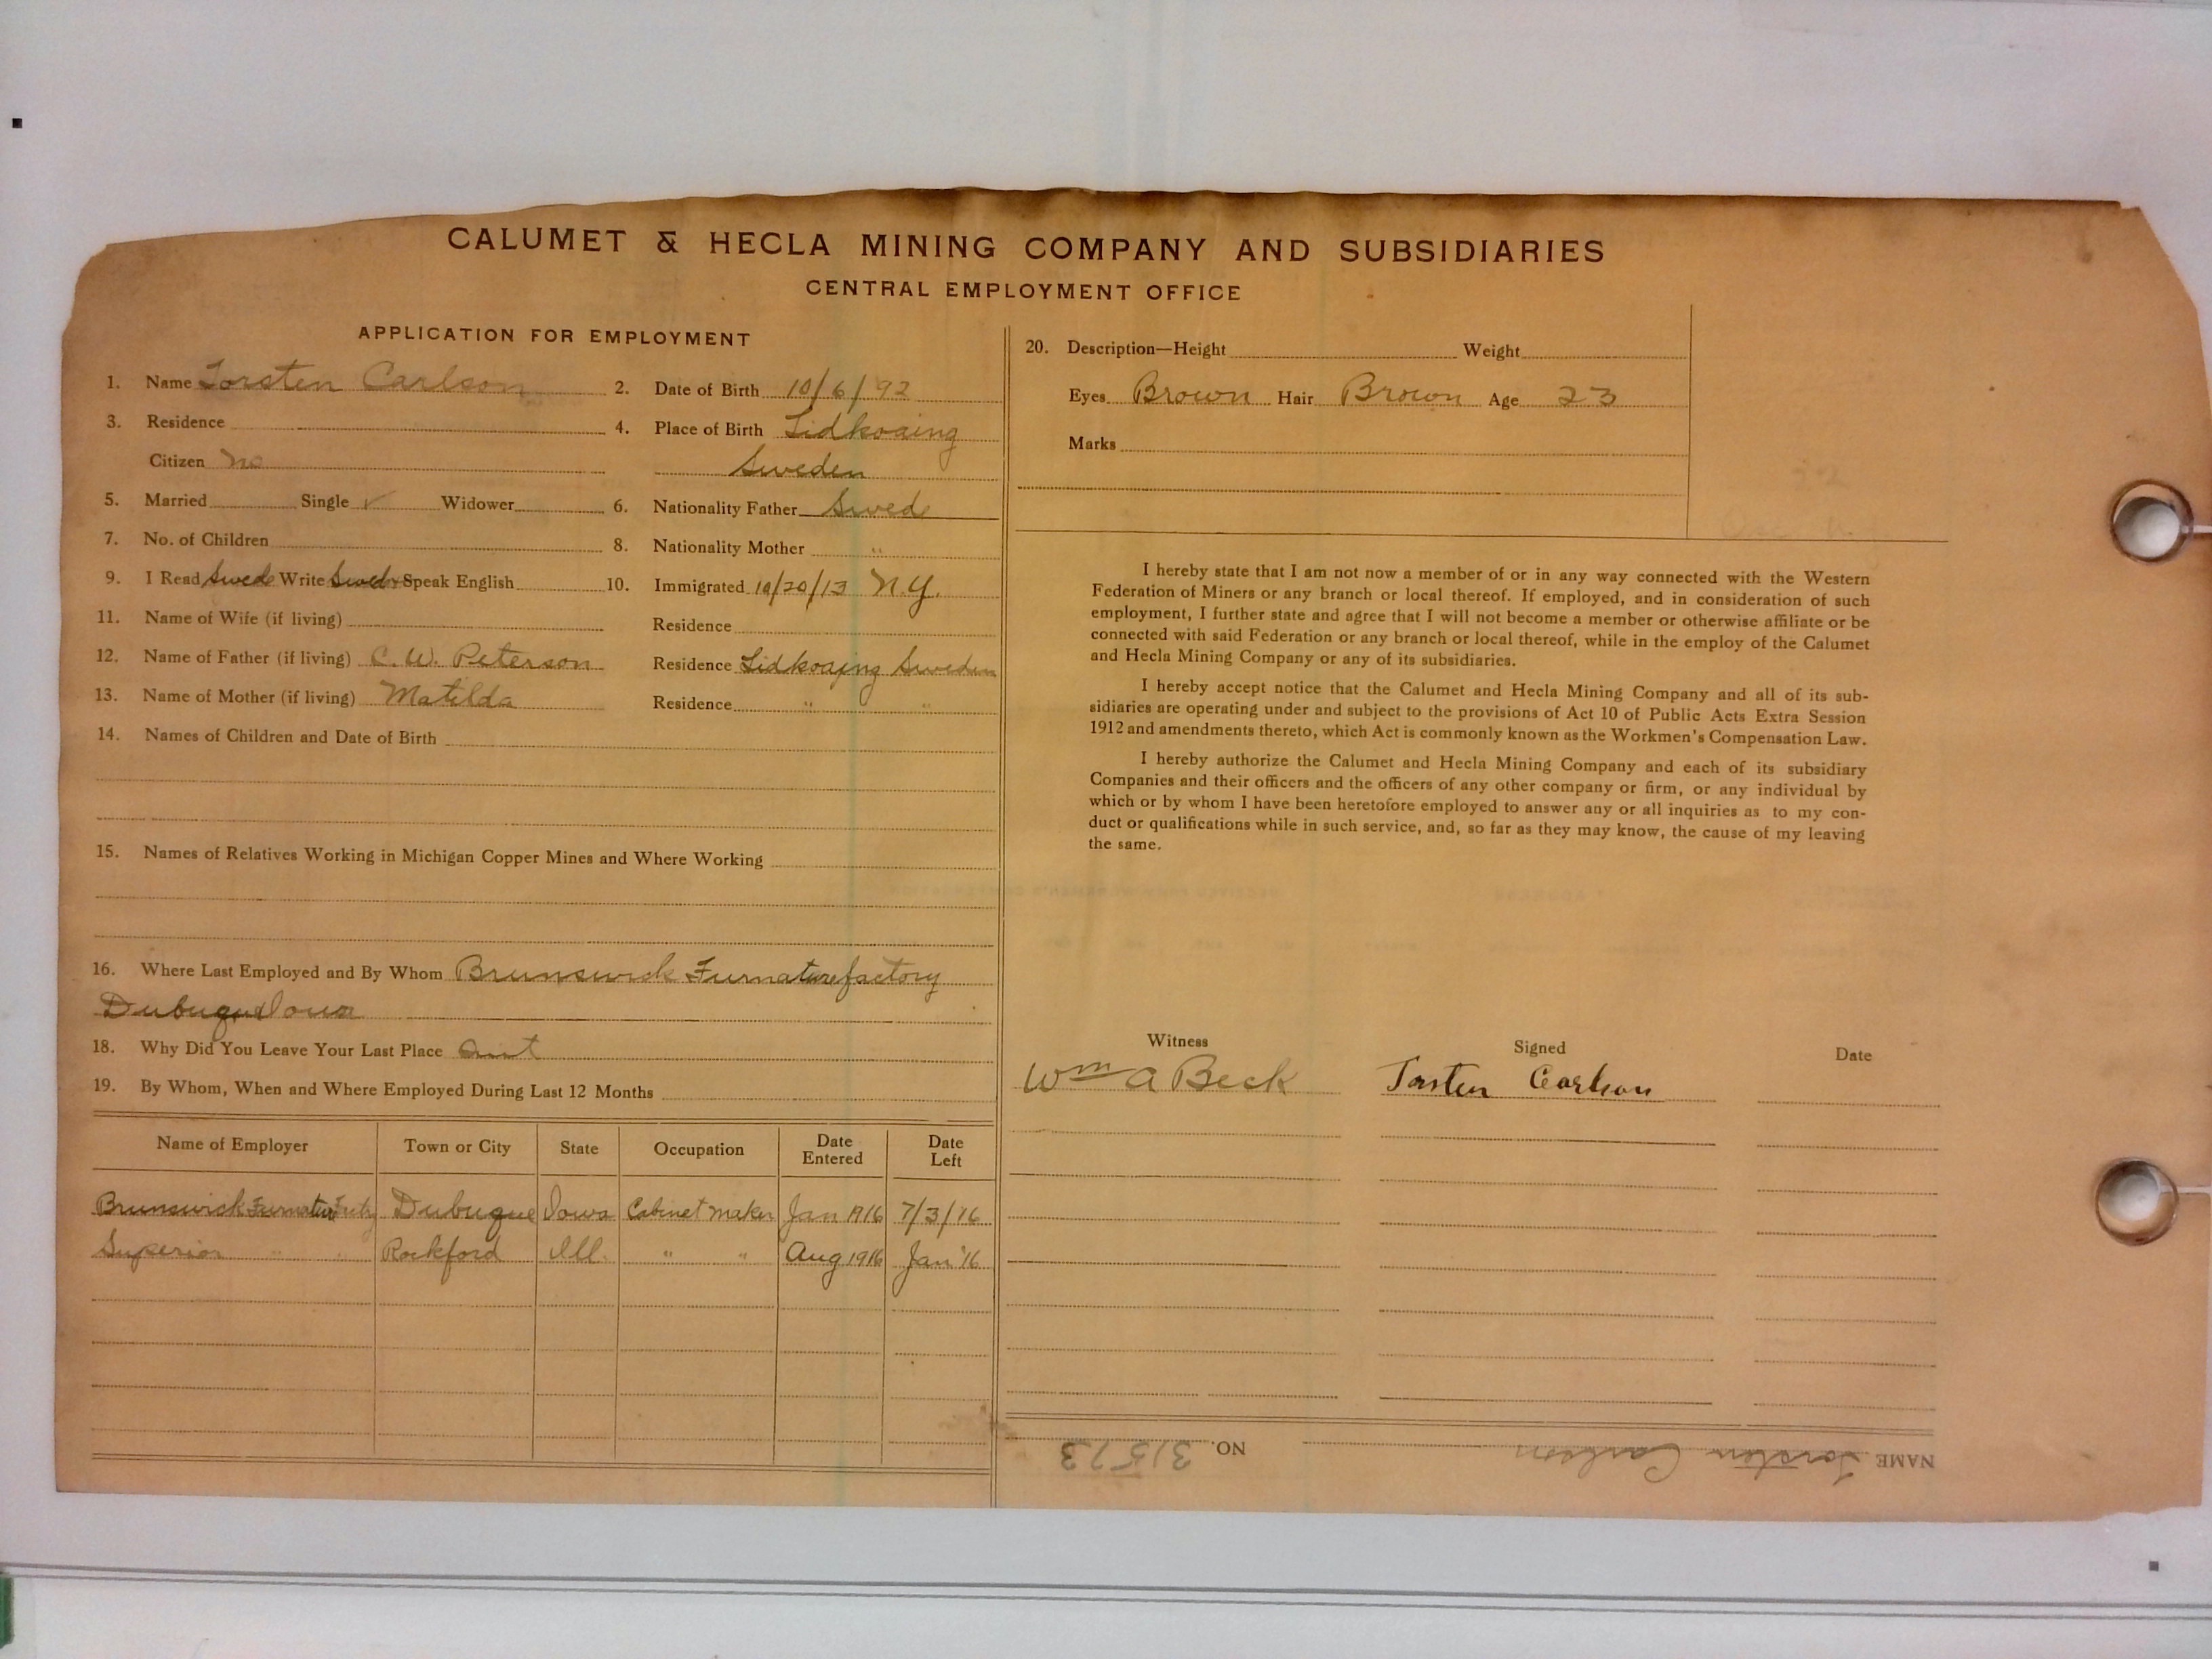 CALUMET & HECLA MINING COMPANY AND SUBSIDIARIES
CENTRAL EMPLOYMENT OFFICE
APPLICATION FOR EMPLOYMENT
1. Name Torsten Carlson 2. Date of Birth 10/6/92
3. Residence 4. Place of Birth Lidkoaing
Citizen No Sweden
5. Married Single ✓ Widower 6. Nationality Father Swed
7. No. of Children 8. Nationality Mother "
9. I Read Swede Write Swede Speak English 10. Immigrated 10/20/13 N.Y.
11. Name of Wife (if living) Residence
12. Name of Father (if living) C. W. Peterson Residence Lidkoaing Sweden
13. Name of Mother (if living) Matilda Residence " "
14. Names of Children and Date of Birth
15. Names of Relatives Working in Michigan Copper Mines and Where Working
16. Where Last Employed and By Whom Brunswick Furnature factory
Dubuque Iowa
18. Why Did You Leave Your Last Place
19. By Whom, When and Where Employed During Last 12 Months
Name of Employer Town or City State Occupation Date Entered Date Left
Brunswick Furnature Dubuque Iowa Cabinet maker Jan 1916 7/3/16
Superior " " Rockford Ill. " " Aug 1916 Jan '16
20. Description—Height Weight
Eyes Brown Hair Brown Age 23
Marks
I hereby state that I am not now a member of or in any way connected with the Western
Federation of Miners or any branch or local thereof. If employed, and in consideration of such
employment, I further state and agree that I will not become a member or otherwise affiliate or be
connected with said Federation or any branch or local thereof, while in the employ of the Calumet
and Hecla Mining Company or any of its subsidiaries.
I hereby accept notice that the Calumet and Hecla Mining Company and all of its sub-
sidiaries are operating under and subject to the provisions of Act 10 of Public Acts Extra Session
1912 and amendments thereto, which Act is commonly known as the Workmen's Compensation Law.
I hereby authorize the Calumet and Hecla Mining Company and each of its subsidiary
Companies and their officers and the officers of any other company or firm, or any individual by
which or by whom I have been heretofore employed to answer any or all inquiries as to my con-
duct or qualifications while in such service, and, so far as they may know, the cause of my leaving
the same.
Witness Signed Date
Wm A Beck Torsten Carlson
NAME Torsten Carlson NO. 31573